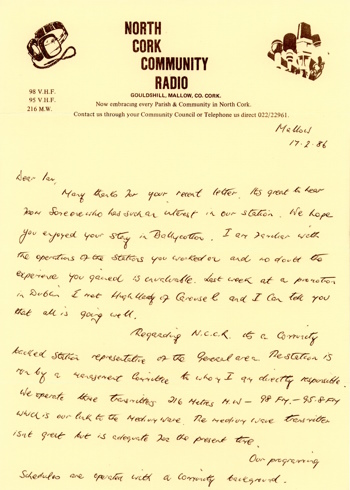 NORTH
CORK
COMMUNITY
RADIO
GOULDSHILL, MALLOW, CO. CORK.
98 V.H.F.
95 V.H.F.
216 M.W.
Now embracing every Parish & Community in North Cork.
Contact us through your Community Council or Telephone us direct 022/22961.
Mallow
17.2.86
Dear Ian,
Many thanks for your recent letter. Its great to hear
from someone who has such an interest in our station. We hope
you enjoyed your stay in Ballycotton. I am familiar with
the operations of the stations you worked on and no doubt the
experience you gained is invaluable. Last week at a promotion
in Dublin I met Hugh Hardy of Carousel and I can tell you
that all is going well.
Regarding N.C.C.R. its a Community
backed station representative of the general area. The station is
run by a management Committee to whom I am directly responsible.
We operate three transmitters 216 Metres M.W - 98 FM - 95.8 FM
which is our link to the medium wave. The medium wave transmitter
isnt great but is adequate for the present time.
Our programing
Schedules are operated with a community background.